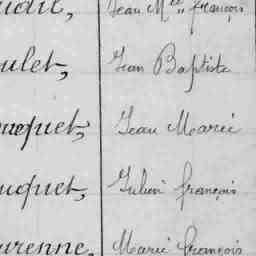 Jean Mie françois
ulet, Jean Baptiste
quet, Jean Marie
uquet, Julien françois
arenne, Marie françois